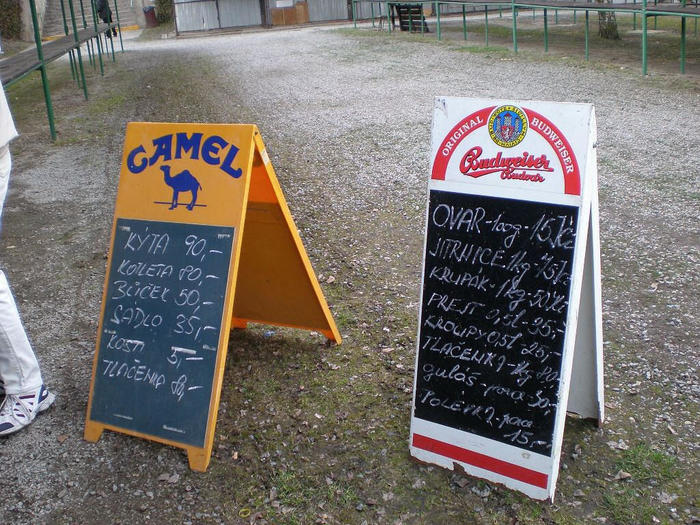 CAMEL
KÝTA 90,-
KOTLETA 80,-
BŮČEK 50,-
SÁDLO 35,-
KOSTI 5,-
TLAČENKA 80,-
ORIGINAL BUDWEISER
Budweiser
Budvar
OVAR-100g-15Kč
JITRNICE 1kg 75,-
KRUPÁK-1kg 50Kč
PREJT-0,5l-25,-
KROUPY 0,5l 25,-
TLAČENKA-1kg 80,-
guláš-porce 30,-
POLÉVKA-porce
15,-